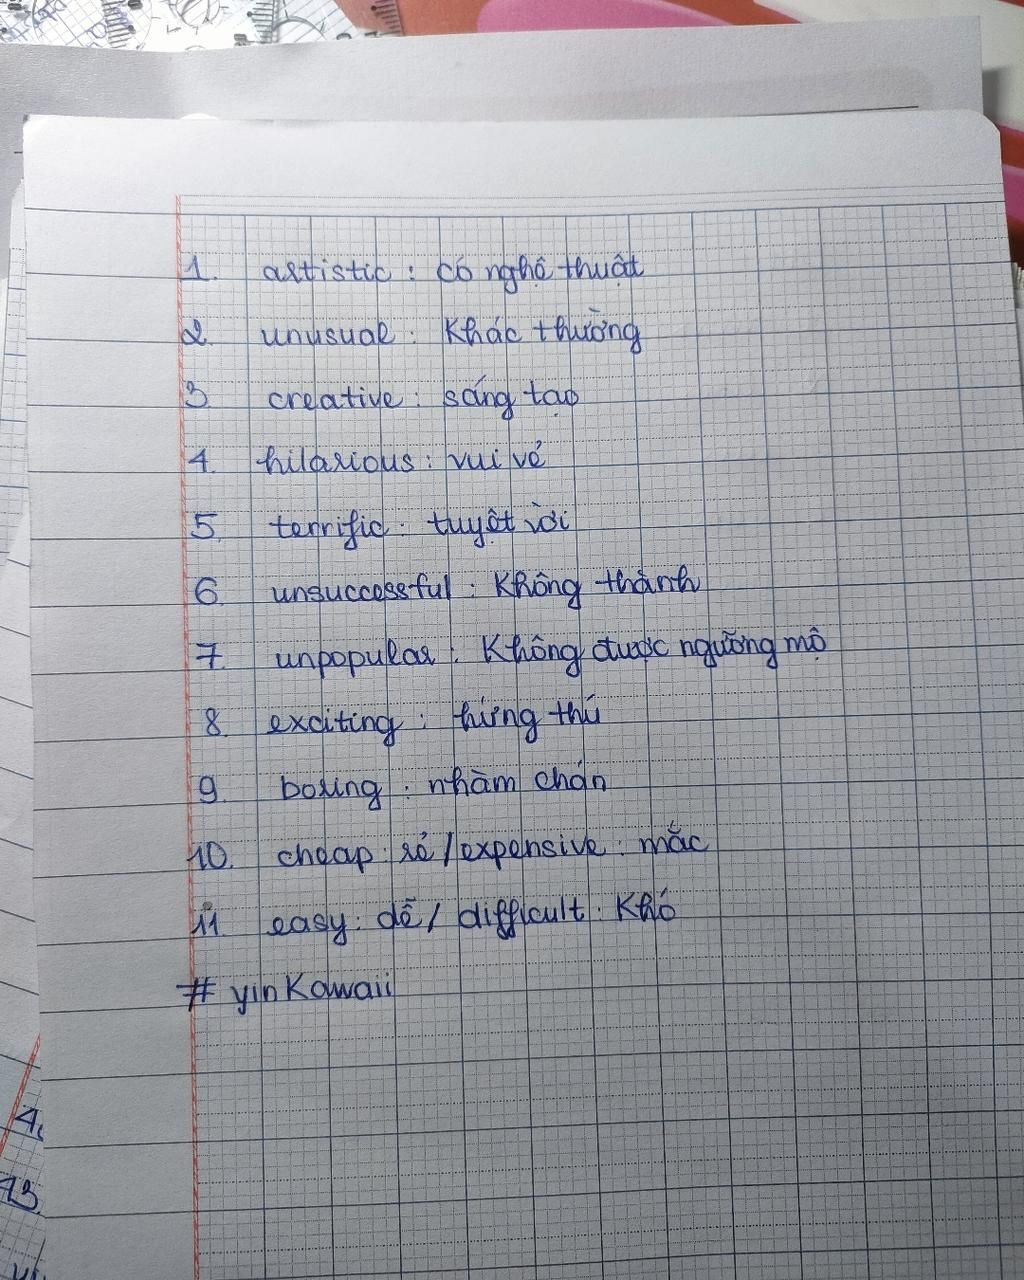 1. artistic : có nghệ thuật
2. unusual : Khác thường
3. creative : sáng tạo
4. hilarious : vui vẻ
5. terrific : tuyệt vời
6. unsuccessful : Không thành
7. unpopular : Không được ngưỡng mộ
8. exciting : hứng thú
9. boring : nhàm chán
10. cheap : rẻ / expensive : mắc
11. easy : dễ / difficult : Khó
# yinKawaii
4.
13